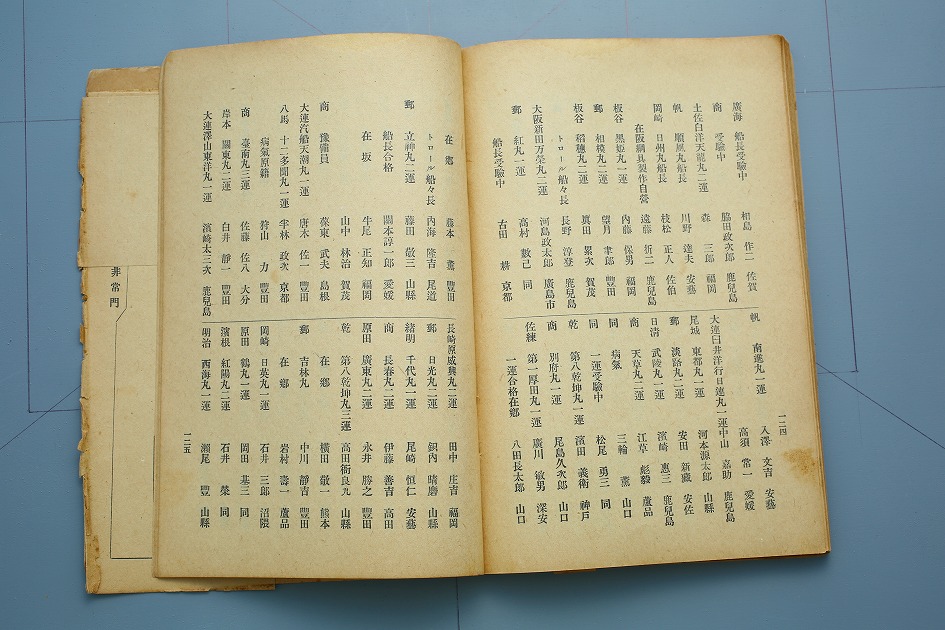 廣海 船長受驗中 相島 作二 佐賀
商 受驗中 脇田政次郎 鹿兒島
土佐白洋天龍丸二運 森 三郎 福岡
帆 順風丸船長 川野 達夫 安藝
岡崎 日州丸船長 枝松 正人 佐伯
在阪網具製作自營 遠藤 折二 鹿兒島
板谷 黑姬丸一運 內藤 保男 福岡
郵 相模丸二運 望月 郎 豐田
板谷 稻穗丸二運 眞田 累次 賀茂
トロール船々長 長野 淳登 鹿兒島
大阪新田万榮丸二運 河島政太郎 廣島市
郵 紅丸一運 高村 數己 同
船長受驗中 古田 耕 京都
帆 南進丸一運 入澤 文吉 安藝
高須 常一 愛媛
大連臼井洋行日連丸一運 中山 嘉助 鹿兒島
尾城 東都丸一運 河本源太郎 山縣
郵 淡路丸二運 安田 新藏 安佐
日清 武陵丸一運 濱崎 惠三 鹿兒島
商 天草丸二運 江草 彪毅 蘆品
病氣 三輪 薰 山口
同 一運受驗中 松尾 勇三 同
乾 第八乾坤丸一運 濱田 義衛 神戶
商 別府丸一運 尾島久次郎 山口
佐練 第一厚田丸一運 廣川 敏男 深安
一運合格在鄉 八田長太郎 山口
一二四
在鄉 藤本 薰 豐田
トロール船々長 內海 隆吉 尾道
郵 立神丸二運 藤田 敬三 山縣
船長合格 關本諄二郎 愛媛
在坂 牛尾 正知 福岡
山中 林治 賀茂
商 豫備員 葉東 武夫 島根
大連汽船天潮丸一運 唐木 佐一 豐田
八馬 十二多聞丸一運 半林 政次 京都
病氣原籍 狩山 力 豐田
商 臺南丸三運 佐藤 佐八 大分
岸本 關東丸二運 白井 靜一 豐田
大連澤山東洋丸一運 濱崎太三次 鹿兒島
長崎原咸興丸二運 田中 庄吉 福岡
郵 日光丸二運 鈬內 晴磨 山縣
緒明 千代丸一運 尾崎 恒仁 安藝
商 長春丸二運 伊藤 善吉 高田
原田 廣東丸二運 永井 勝之 豐田
乾 第八乾坤丸三運 高田衛良九 山縣
在鄉 橫田 敬一 熊本
郵 吉林丸 中川 靜吉 豐田
在鄉 岩村 壽一 蘆品
岡崎 日英丸一運 石井 三郎 沼隈
原田 鶴丸一運 岡田 基三 同
濱根 紅陽丸二運 石井 榮 同
明治 西海丸一運 瀨尾 豐 山縣
一二五
非常門